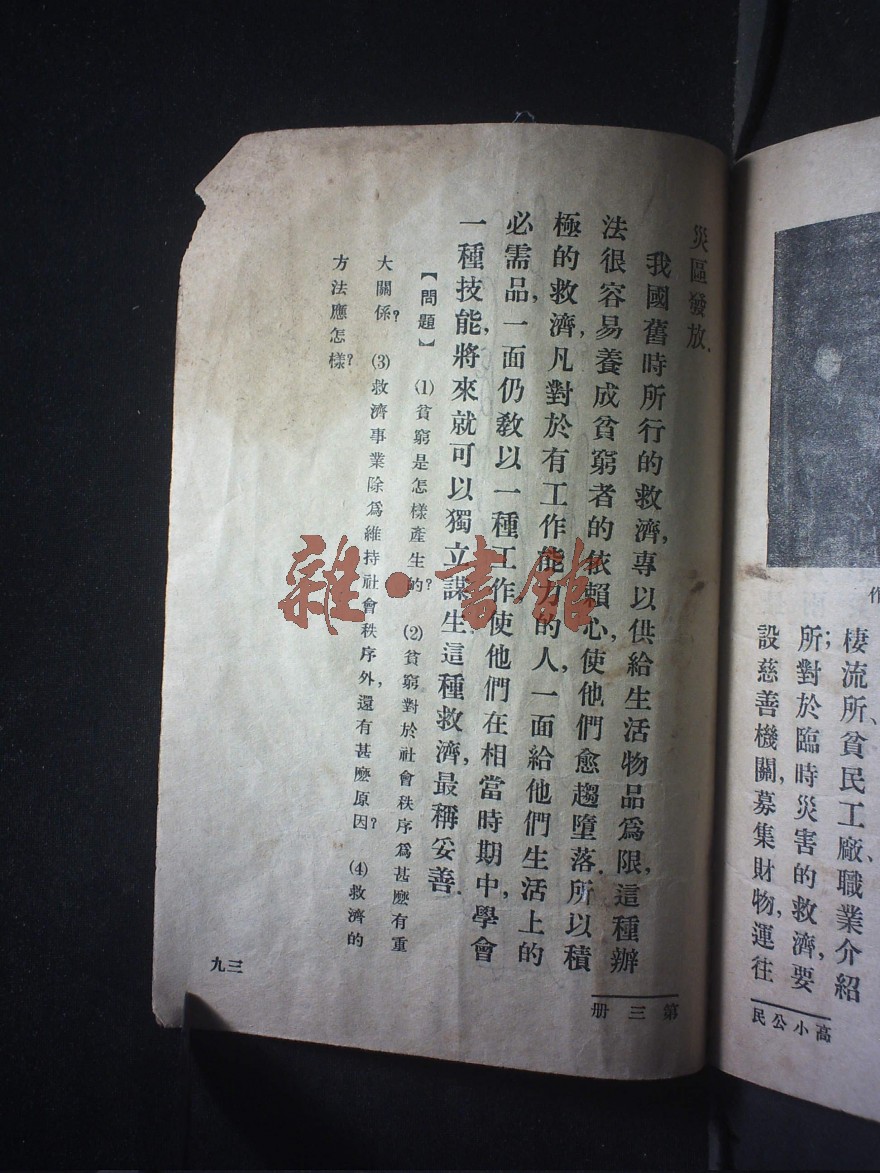 作
棲流所、貧民工廠、職業介紹
所；對於臨時災害的救濟，要
設慈善機關，募集財物，運往
高小公民
災區發放．
我國舊時所行的救濟，專以供給生活物品爲限，這種辦
法很容易養成貧窮者的依賴心，使他們愈趨墮落．所以積
極的救濟，凡對於有工作能力的人，一面給他們生活上的
必需品，一面仍敎以一種工作，使他們在相當時期中，學會
一種技能，將來就可以獨立謀生．這種救濟，最稱妥善．
【問題】 (1)貧窮是怎樣產生的？ (2)貧窮對於社會秩序爲甚麼有重
大關係？ (3)救濟事業除爲維持社會秩序外，還有甚麼原因？ (4)救濟的
方法應怎樣？
第三册
三九
雜·書館